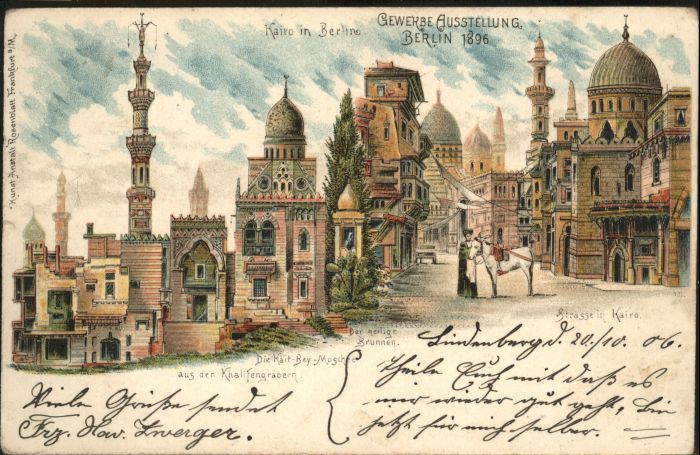 Kairo in Berlin
GEWERBE AUSSTELLUNG
BERLIN 1896
Kunst Anstalt Rosenblatt Frankfurt a/M.
Strasse in Kairo.
Der heilige
Brunnen.
Die Kait-Bey-Moschee
aus den Khalifengräbern.
Lindenberg d. 20./10. 06.
Theile Euch mit daß es
mir wieder gut geht, bin
jetzt für mich selber.
Viele Grüße sendet
Frz. Xav. Zwerger.